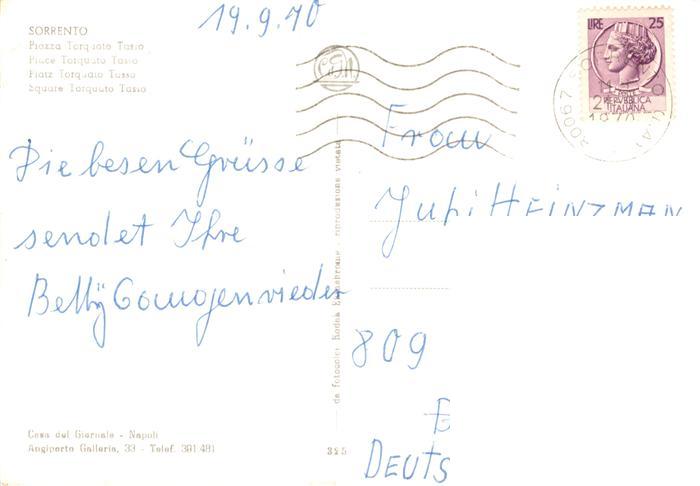 19.9.70
SORRENTO
Piazza Torquato Tasso
Place Torquato Tasso
Platz Torquato Tasso
Square Torquato Tasso
LIRE 25
REPVBBLICA
ITALIANA
Die besen Grüsse
sendet Ihre
Frau
HEINZMAN
809
DEUTS
Casa del Giornale - Napoli
Angiporto Galleria, 33 - Telef. 391.481
325